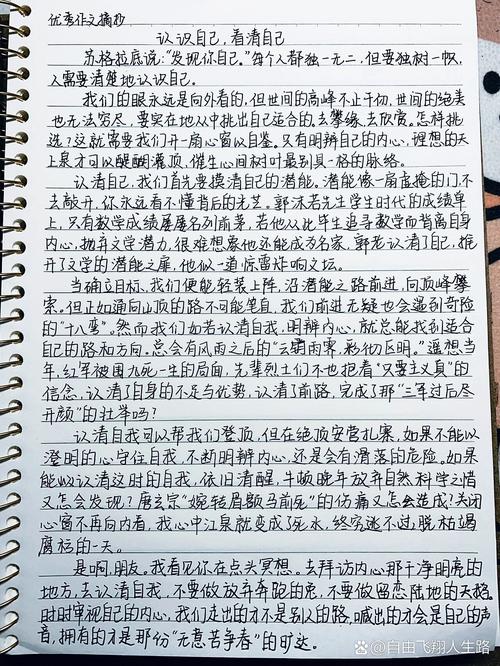 优秀作文摘抄
认识自己,看清自己
苏格拉底说:“发现你自己。”每个人都独一无二,但要独树一帜,
人需要清楚地认识自己。
我们的眼永远是向外看的,但世间的高峰不止千仞,世间的绝美
也无法穷尽,要实在地从中挑出自己适合的去攀缘、去欣赏。怎样挑
选?这就需要我们开一扇心窗以自鉴。只有明辨自己的内心,理想的天
上泉才可以醍醐灌顶,催生心间树叶最别具一格的脉络。
认清自己,我们首先要摸清自己的潜能。潜能像一扇虚掩的门,不
去敲开,你永远看不懂背后的光芒。郭沫若先生学生时代的成绩单
上,只有数学成绩屡屡名列前茅,若他从此毕生追寻数学而背离自身
内心,抛弃文学潜力,很难想象他还能成为名家。郭老认清了自己,推
开了文学的潜能之扉,他似一道惊雷炸响文坛。
当确立目标,我们便能轻装上阵,沿潜能之路前进,向顶峰攀
索。但正如通向山顶的路不可能笔直,我们前进无疑也会遇到奇险
的“十八弯”。然而我们如若认清自我,明辨内心,就总能找到适合
自己的路和方向。总会有风雨之后的“云霸雨寒,彩彻区明。”遥想当
年,红军被困九死一生的局面,先辈烈士们不也抱着“只要主义真”的
信念,认清了自身的不足与优势,认清了前路,完成了那“三军过后尽
开颜”的壮举吗?
认清自我可以帮我们登顶,但在绝顶安营扎寨,如果不能以
澄明的心守住自我,不断明辨内心,还是会有滑落的危险。如果
能以认清这时的自我,依旧清醒,牛顿晚年放弃自然科学之惜
又怎会发现?唐玄宗“婉转眉额马前死”的伤痛又怎会造成?关闭
心窗不再向内看,我心中江泉就变成了死水,终究逃不过脱枯竭
腐殆的一天。
是啊,朋友。我看见你在点头冥想。去拜访内心那干净明亮的
地方,去认清自我,不要做放弃奔跑的兔,不要做留恋陆地的天鹅
时时审视自己的内心,我们走出的才不是别人的路,喊出的才会是自己的声
音,拥有的才是那份“无意苦争春”的旷达。
@自由飞翔人生路